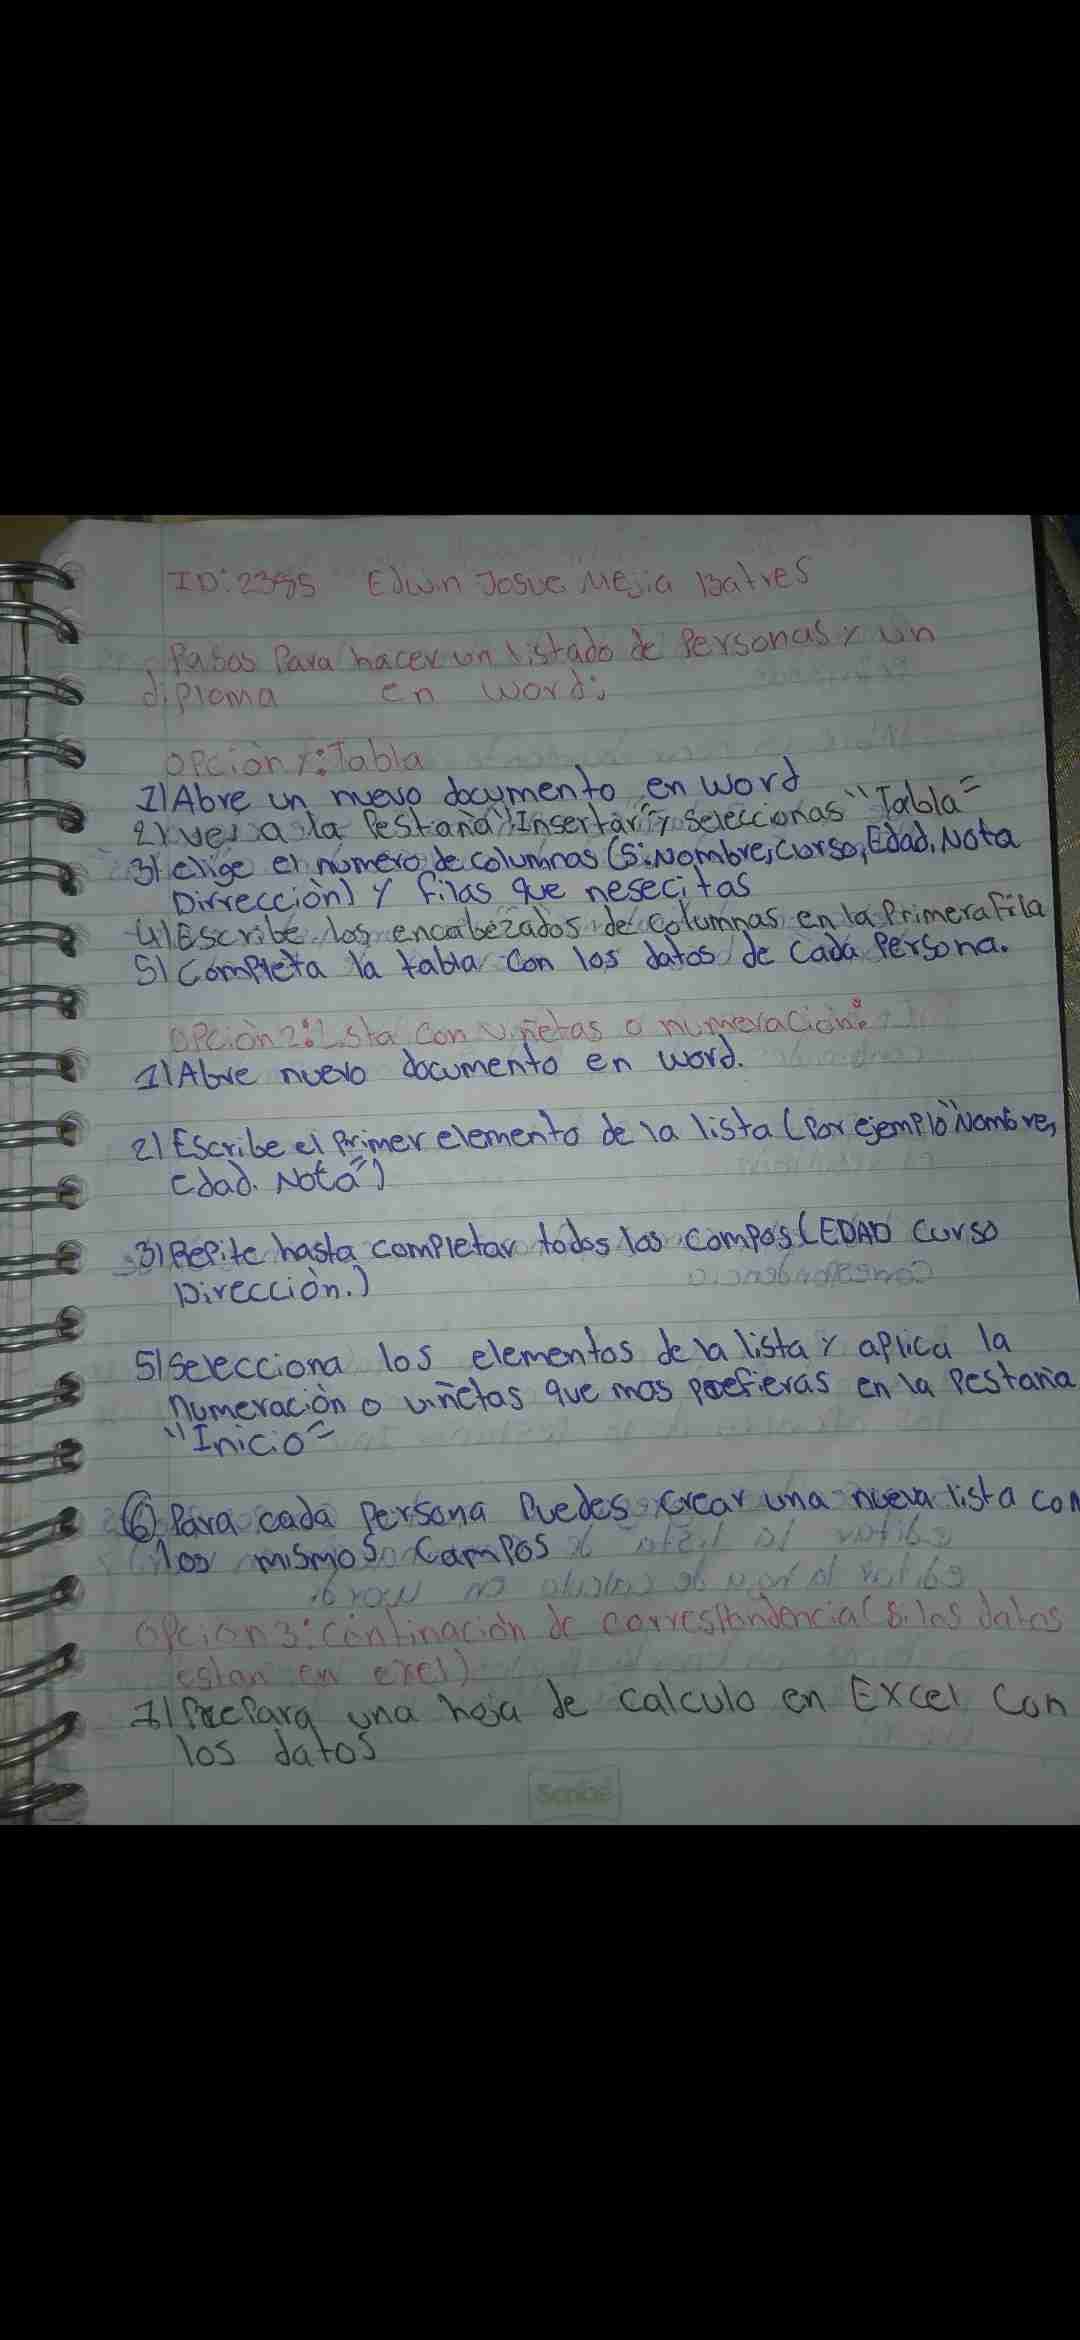 ID:2395 Edwin Josue Mejia Batres
Pasos Para hacer un listado de Personas y un
diploma en word:
Opción 1: Tabla
1) Abre un nuevo documento en word
2) ves a la Pestaña "Insertar" y seleccionas "Tabla"
3) elige el número de columnas (5: Nombre, Curso, Edad, Nota
Dirrección) y filas que nesecitas
4) Escribe los encabezados de columnas en la Primera Fila
5) Completa la tabla con los datos de cada Persona.
Opción 2: Lista con viñetas o numeración:
1) Abre nuevo documento en word.
2) Escribe el Primer elemento de la lista (Por ejemplo "Nombre,
Edad. Nota")
3) Repite hasta completar todos los compos (EDAD Curso
Dirección.)
5) Selecciona los elementos de la lista y aplica la
numeración o viñetas que mas prefieras en la Pestaña
"Inicio"
6) Para cada Persona Puedes crear una nueva lista con
los mismos Campos
Opcion 3: Continación de correspondencia (si los datos
estan en exel)
1) Prepara una hoja de calculo en Excel Con
los datos
Scribe